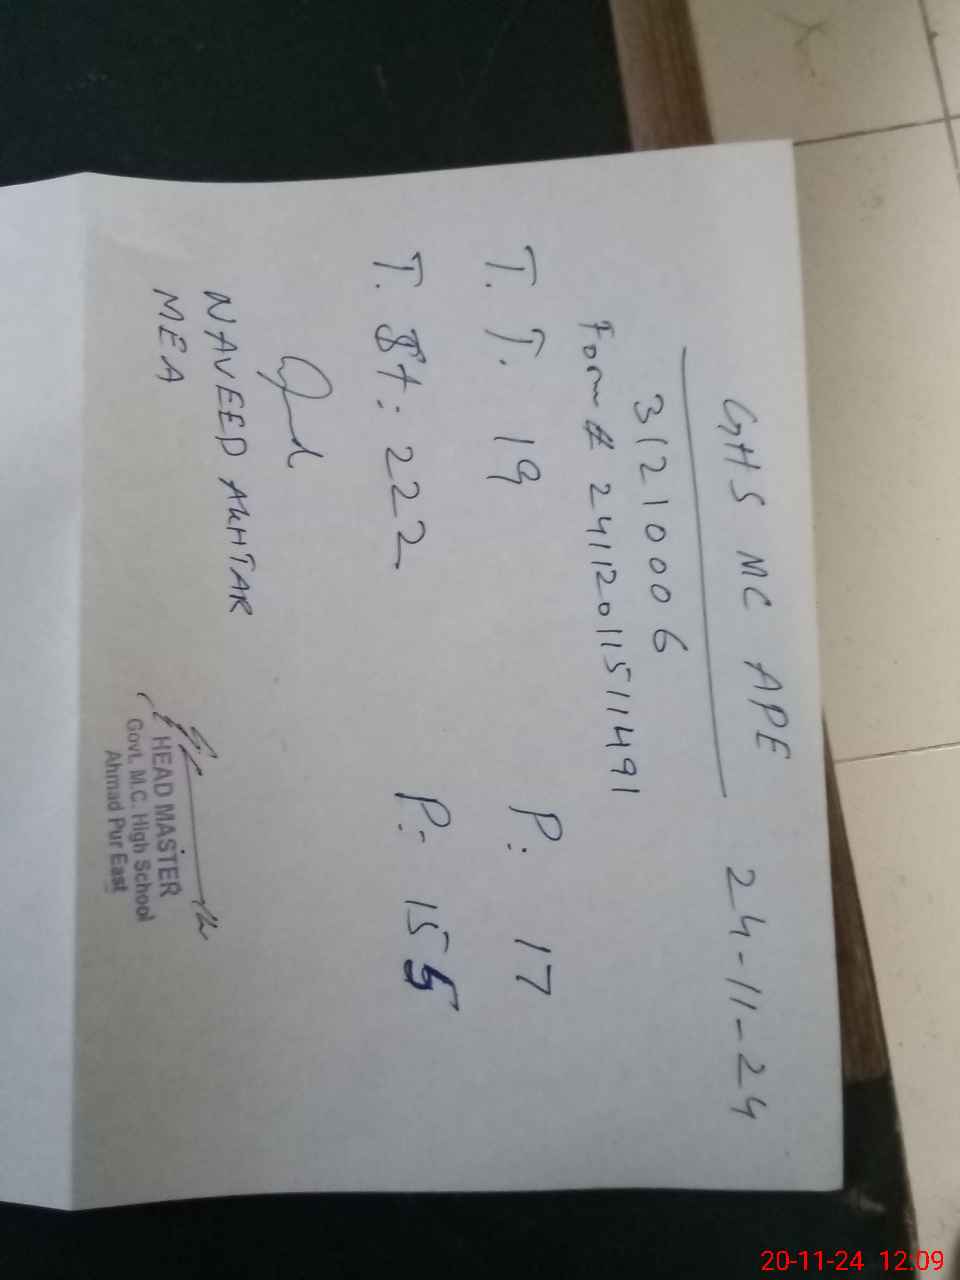 GHS MC APE 24-11-24
31210006
Form # 241120115111491
T. T. 19 P: 17
T. St: 222 P: 155
NAVEED AKHTAR
MEA
HEAD MASTER
Govt. M.C. High School
Ahmad Pur East
20-11-24 12:09